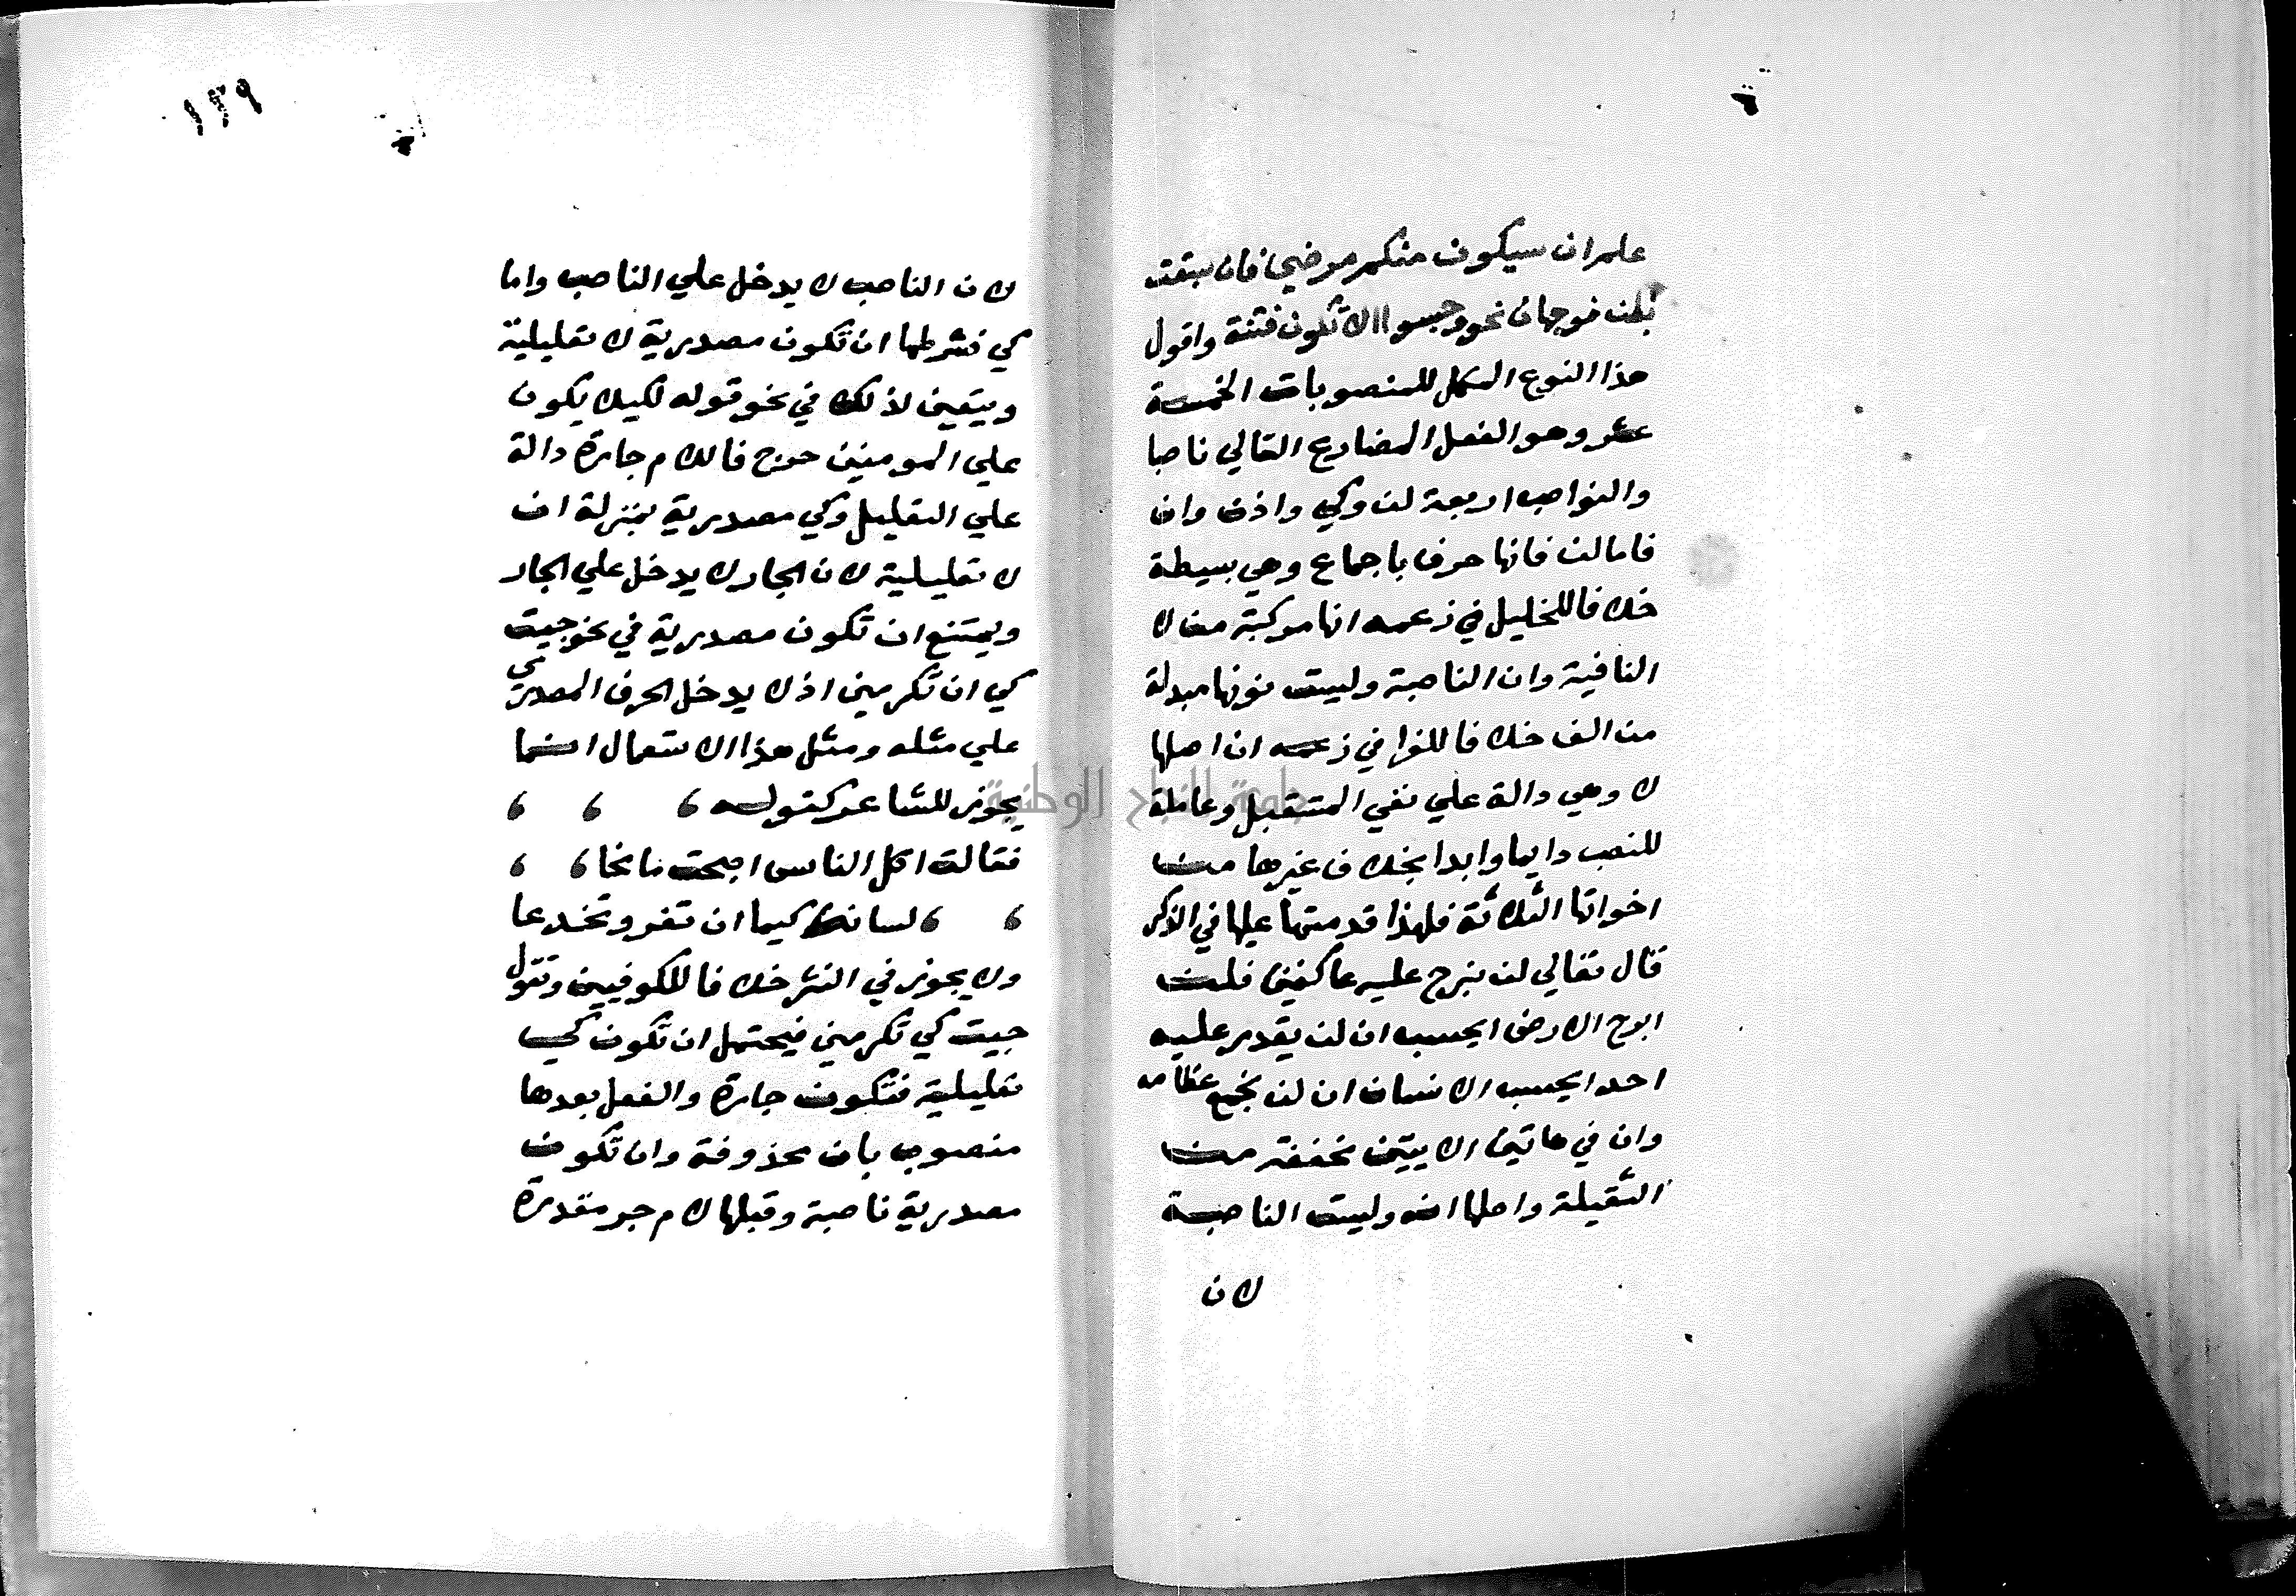 علم ان سيكون منكم مرضي فان سبقت
بظن فوجهان نحو وحسبوا الا تكون فتنة واقول
هذا النوع المكمل للمنصوبات الخمسة
عشر وهو الفعل المضارع التالي ناصبا
والنواصب اربعة لن وكي واذن وان
فاما لن فانها حرف باجماع وهي بسيطة
خلافا للخليل في زعمه انها مركبة من لا
النافية وان الناصبة وليست نونها مبدلة
من الف خلافا للفرا في زعمه ان اصلها
لا وهي دالة علي نفي المستقبل وعاملة
للنصب دايما وابدا بخلاف غيرها من
اخواتها الثلاثة فلهذا قدمتها عليها في الذكر
قال تعالي لن نبرح عليه عاكفين فلن
ابرح الارض ايحسب ان لن يقدر عليه
احد ايحسب الانسان ان لن نجمع عظامه
وان في هاتين الايتين مخففة من
الثقيلة واصلها انه وليست الناصبة
لان
١٣٩
لان الناصب لا يدخل علي الناصب واما
كي فشرطها ان تكون مصدرية لا تعليلية
ويتعين لذلك في نحو قوله لكيلا يكون
علي المومنين حرج فاللام جارة دالة
علي التعليل وكي مصدرية بمنزلة ان
لا تعليلية لان الجار لا يدخل علي الجار
ويمتنع ان تكون مصدرية في نحو جيت
كي ان تكرمني اذ لا يدخل الحرف المصدري
علي مثله ومثل هذا الاستعمال انما
يجوز للشاعر كقوله ، ، ،
فقالت اكل الناس اصبحت مانحا ، ،
، ، لسانك كيما ان تغر وتخدعا
ولا يجوز في النثر خلافا للكوفيين وتقول
جيت كي تكرمني فيحتمل ان تكون كي
تعليلية فتكون جارة والفعل بعدها
منصوب بان محذوفة وان تكون
مصدرية ناصبة وقبلها لام جر مقدرة
جامعة النجاح الوطنية